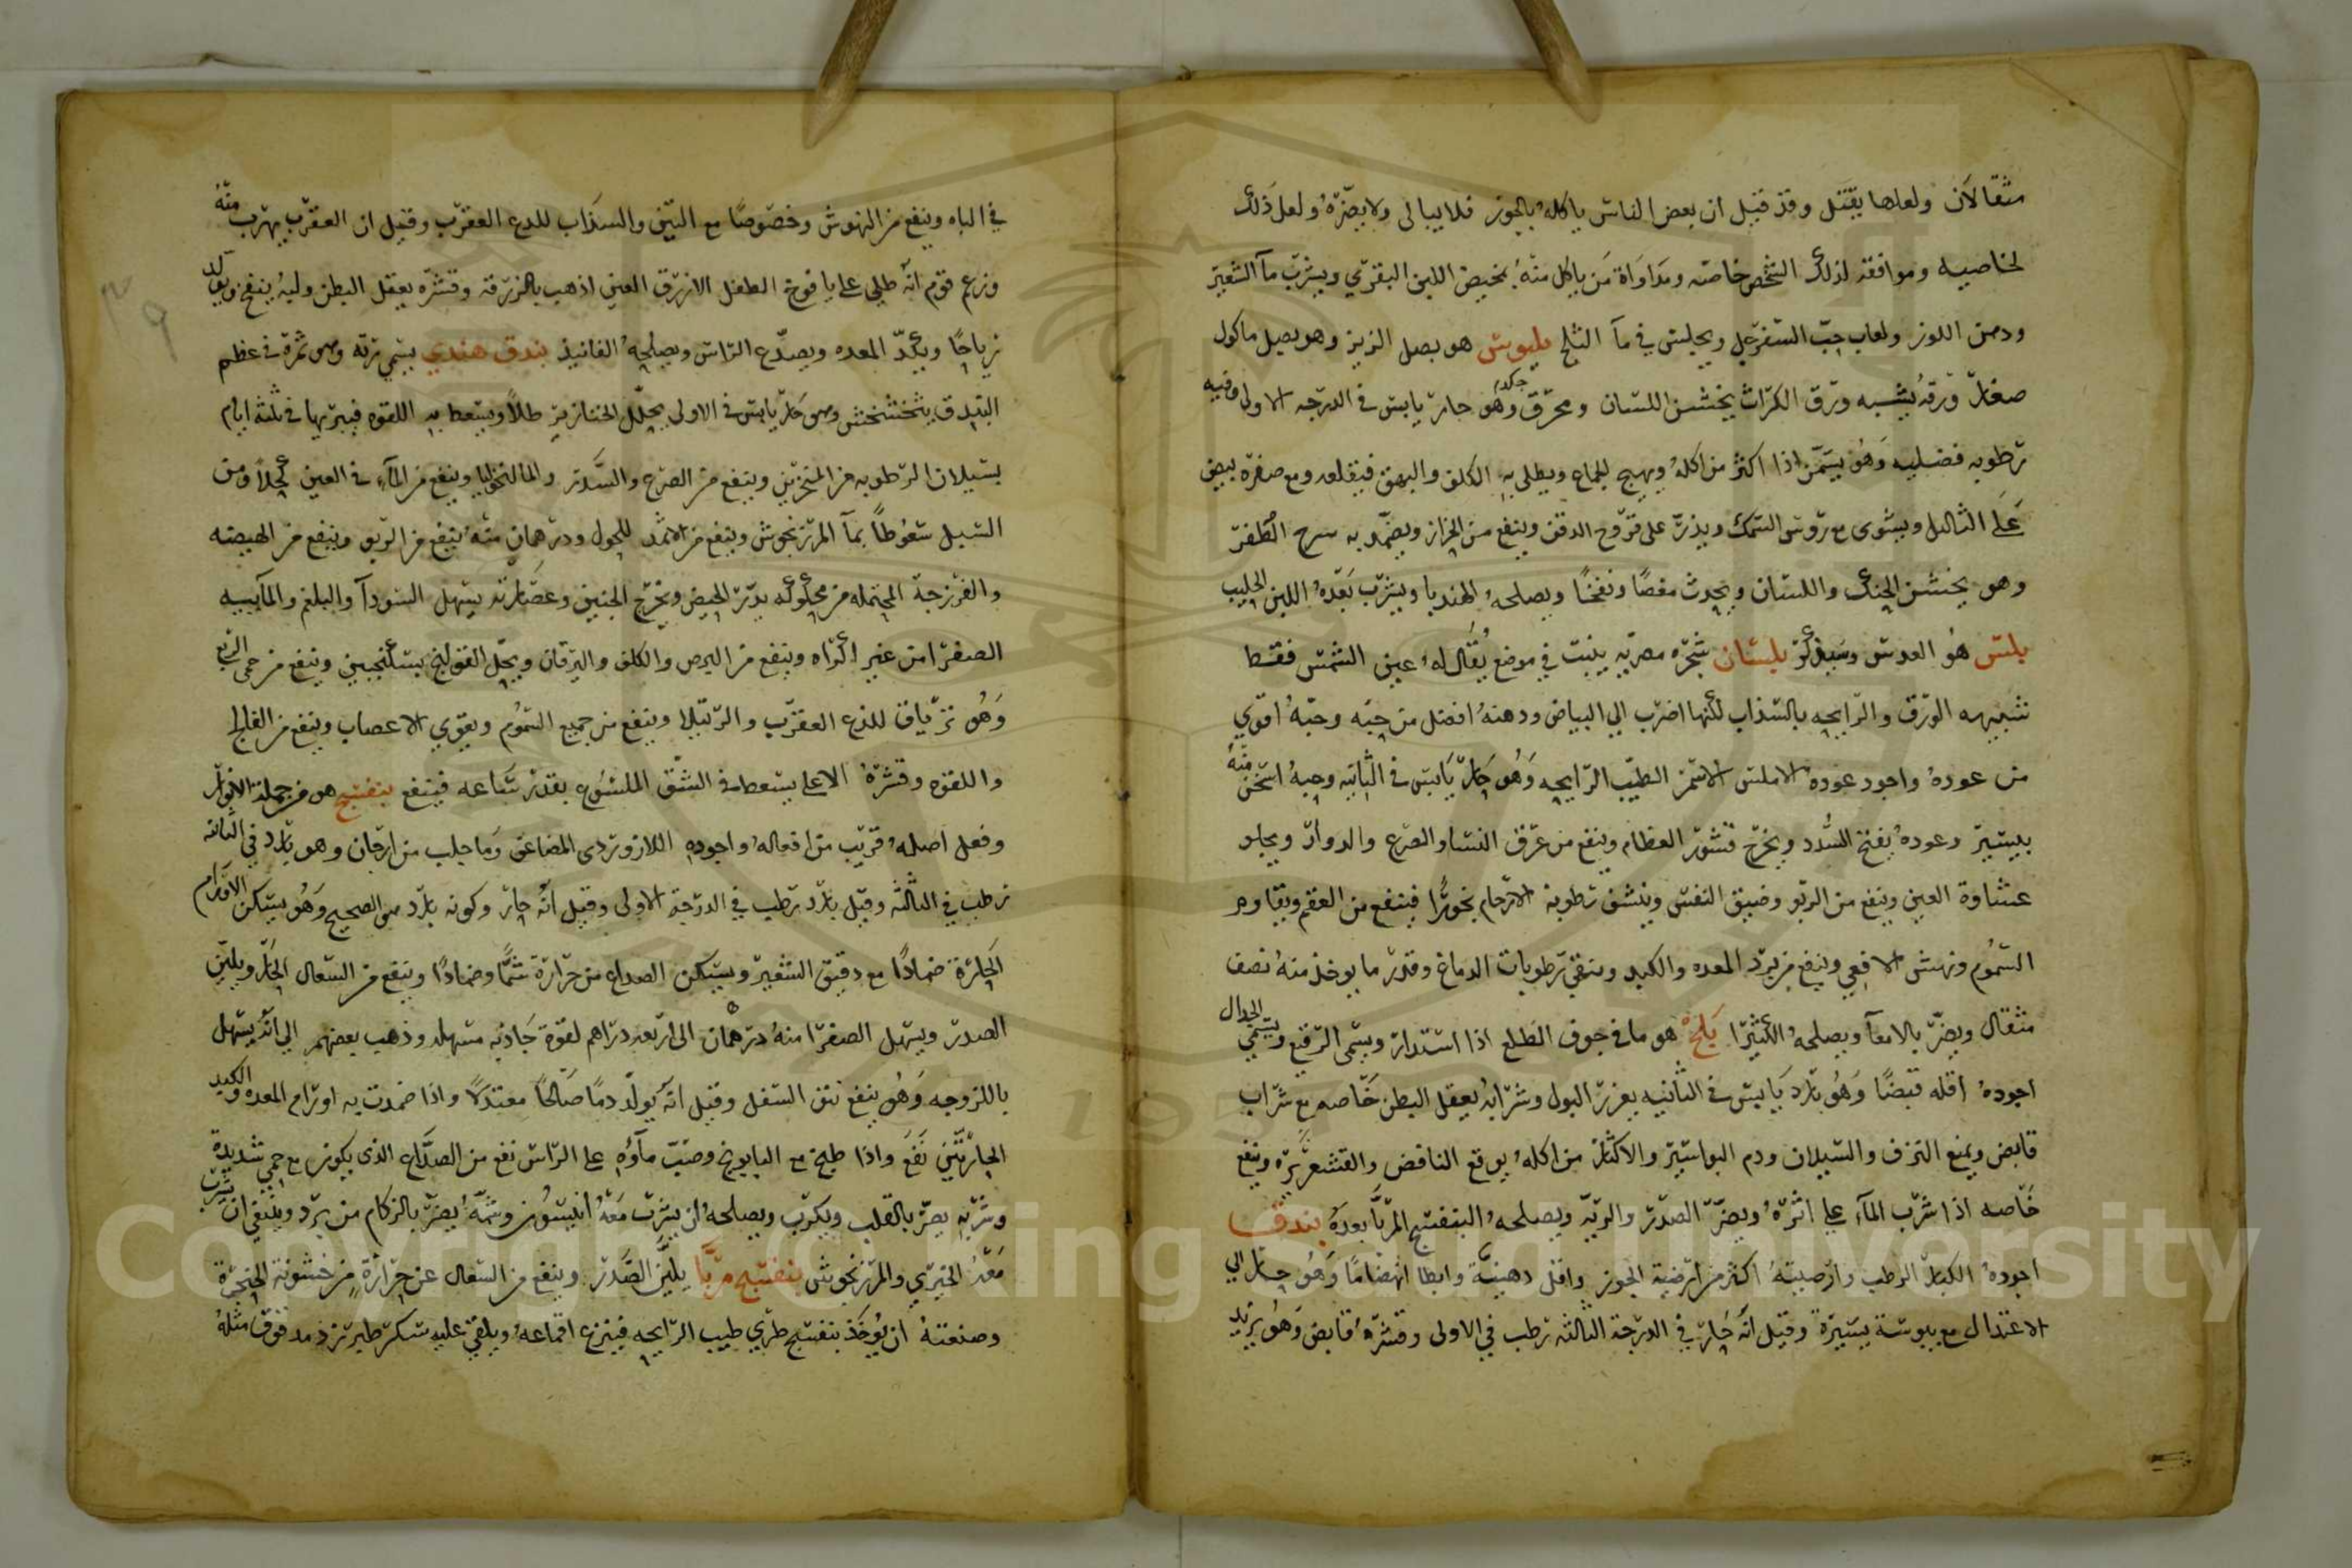 مثقالان ولعلها يقتل وقد قيل ان بعض الناس ياكله بالجوز فلا يبالى ولا يضره ولعل ذلك
لخاصيه وموافقه لذلك الشخص خاصه ومداواة من ياكل منه بمخيض اللبن البقرى ويشرب مآ الشعير
ودهن اللوز ولعاب حب السفرجل ويجلس فى مآ الثلج بلبوس هو بصل الزيز وهو بصل ماكول
صغار ورقه يشبه ورق الكراث يخشن اللسان ومحرق جكه وهو حار يابس فى الدرجه الاولى وفيه
رطوبه فضليه وهو يسمن اذا اكثر من اكله ويهيج للجماع ويطلى به الكلف والبهق فيقلعه ومع صفرة بيض
على الثاليل ويشوى مع روس السمك ويذر على قروح الدقن وينفع من الحزاز ويضمد به سرح الظفر
وهو يخشن الحنك واللسان ويحدث مغصا ونفخا ويصلحه الهندبا ويشرب بعده اللبن الحليب
بلس هو العدس وسيذكر بلسان شجره مصريه ينبت فى موضع يقال له عين الشمس فقط
شبيهه الورق والرايحه بالسذاب لكنها اضرب الى البياض ودهنه افضل من حبه وحبه اقوى
من عوده واجود عوده الاملس الاسمر الطيب الرايحه وهو حار يابس فى الثانيه وحبه اسخن منه
بيسير وعوده يفتح السدد ويخرج قشور العظام وينفع من عرق النسا والصرع والدوار ويجلو
عشاوة العين وينفع من الربو وضيق النفس وينشف رطوبة الارحام بخورا فينفع من العقم ويقاوم
السموم ونهش الافعى وينفع من برد المعده والكبد وينقى رطوبات الدماغ وقدر ما يوخذ منه نصف
مثقال ويضر بالامعآ ويصلحه الكثيرا بلح هو ما فى جوف الطلع اذا استدار ويسمى الرقيع ويسمى الجدال
اجوده اقله قبضا وهو بارد يابس فى الثانيه يغزر البول وشرابه يعقل البطن خاصه مع شراب
قابض ويمنع النزف والسيلان ودم البواسير والاكثار من اكله يوقع النافض والقشعريره وينفع
خاصه اذا شرب المآء على اثره ويضر الصدر والريه ويصلحه البنفسج المربا بعده بندق
اجوده الكبار الرطب وارضيته اكثر من ارضية الجوز واقل دهنيه وابطا انهضاما وهو حار الى
الاعتدال مع يبوسة يسيرة وقيل انه حار فى الدرجة الثالثه رطب فى الاولى وقشره قابض وهو يزيد
فى الباه وينفع من النهوش وخصوصا مع التين والسذاب للدع العقرب وقيل ان العقرب يهرب منه
وزعم قوم انه طلى على يافوخ الطفل الازرق العين اذهب بالزرقه وقشره يعقل البطن ولبه ينفخ ويولد
رياحا ويكد المعده ويصدع الراس ويصلحه الفانيذ بندق هندى يسمى رته وهى ثمرة فى عظم
البندق يتخشخش وهو حار يابس فى الاولى يحلل الخنازير طلا ويسعط به اللقوه فيبريها فى ثلثة ايام
بسيلان الرطوبه من المنخرين وينفع من الصرع والسدر والمالنخوليا وينفع من المآء فى العين كحلا ومن
السبل سعوطا بمآ المرزنجوش وينفع من الاثمد للحول ودرهمان منه ينفع من الربو وينفع من الهيضه
والفرزجة المحتمله من محكوكه يدر الحيض ويخرج الجنين وعصارته يسهل السودآ والبلغم والمآييه
الصفرا من غير اكراه وينفع من البرص والكلف واليرقان ويحل القولنج بسكنجبين وينفع من حمى الربع
وهو ترياق للذع العقرب والرتيلا وينفع من جميع السموم ويقوى الاعصاب وينفع من الفالج
واللقوه وقشره الاعلى يسعط فى الشق الملسوع بقدر ساعه فينفع بنفسج هو من جملة الانوار
وفعل اصله قريب من افعاله واجوده اللازوردى المضاعف وما جلب من ارجان وهو بارد فى الثانيه
رطب فى الثالثه وقيل بارد رطب فى الدرجة الاولى وقيل انه حار وكونه بارد هو الصحيح وهو يسكن الاورام
الحارة ضمادا مع دقيق الشعير ويسكن الصداع من حرارة شما وضمادا وينفع من السعال الحار ويلين
الصدر ويسهل الصفرا منه درهمان الى اربعه دراهم لقوة جاذبه مسهله وذهب بعضهم الى انه يسهل
باللزوجه وهو ينفع نتق السفل وقيل انه يولد دما صالحا معتدلا واذا ضمدت به اورام المعده والكبد
الحارتين نفع واذا طبخ مع البابونج وصب مآؤه على الراس نفع من الصداع الذى يكون مع حمى شديدة
وشربه يضر بالقلب ويكرب ويصلحه ان يشرب معه انيسون وشمه يضر بالزكام من برد وينبغى ان يشرب
معه الخيرى والمرزنجوش بنفسج مربا يلين الصدر وينفع من السعال عن حرارة من خشونة الحنجرة
وصنعته ان يوخذ بنفسج طرى طيب الرايحه فينزع اقماعه ويلقى عليه سكر طبرزد مدقوق مثله
٣٩